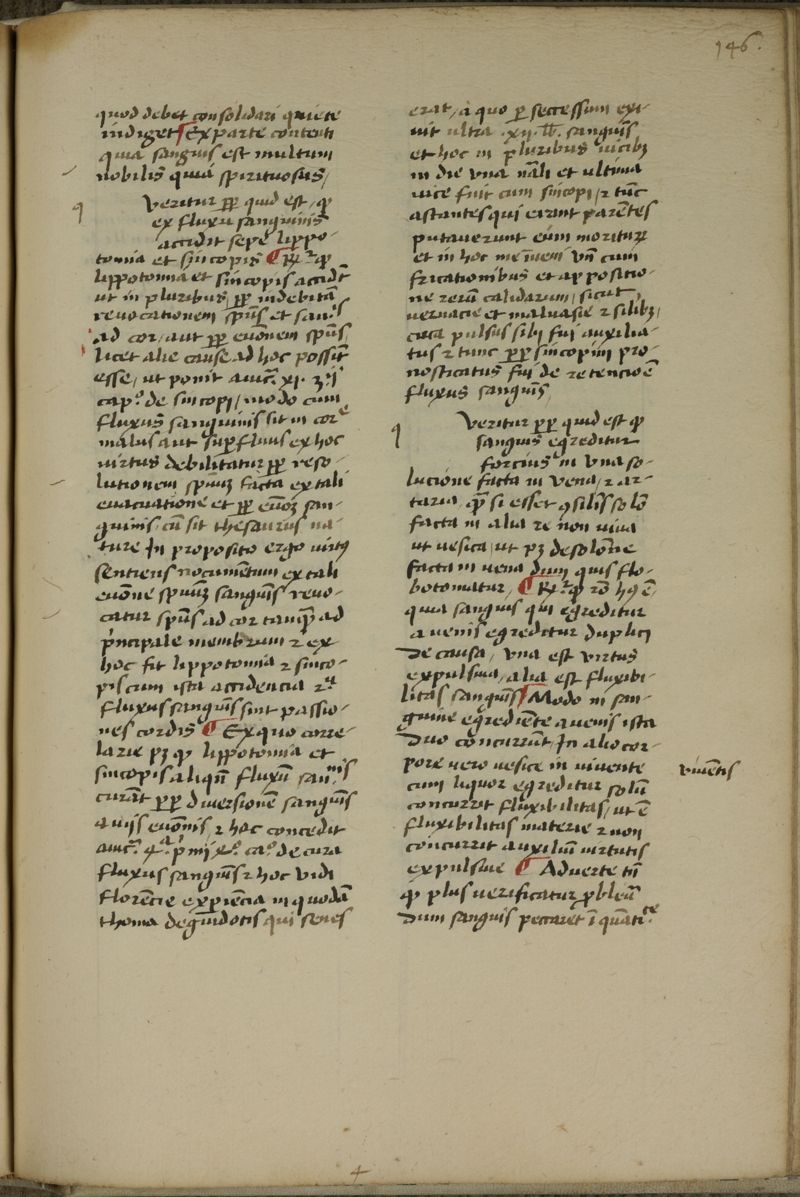 146.
quod debet consolidari quiete
indiget Ex parte contenti
quia sanguis est multum
nobilis quia spirituosus /
Veritur ꝓꝑ quid est / ꝙ
ex fluxu sanguinis
accidit sepe lippo-
tomia et sincopis ¶ R̄ ꝙ
lippotomia et sincopis accidt̄
ut in pluribus ꝓꝑ indebitā
revocationem spūs et san̄s
ad cor / aut ꝓꝑ euōnem spūs
licet alie cause ad hoc possūt
esse / ut ponit auic̄. xi. 3ⁱʲ
cap.º de sincopi / modo cum
fluxus sanguinis sit in corᵉ
malus aut suꝑfluus ex hoc
virtus debilitatur ꝓꝑ reso-
lutionem spūuʒ facta ex tali
evacuatione et ꝓꝑ euōʒ san-
guinis / cū sit thesaurus na-
ture In proposito ergo virtꝰ
sentiens nocumētum ex tali
euōne spūuʒ sanguīs revo-
catur spūs ad cor tamꝙ̄ ad
p̄ncipale membrum ⁊ ex
hoc fit lippotomia ⁊ sinco-
pis cum ista accidencia ⁊ᵃ
fluxus sanguīs sint passio-
nes cordis ¶ Ex quo corre-
larie pʒ ꝙ lippotomia et
sincopis aliqn̄ fluxū san.ⁿⁱˢ
curāt ꝓꝑ diversionē sanguīs
a viis euōnis / ⁊ hoc concedit
auic̄. 4ᵃ p̄mi xxº. caº. de cura
fluxus sanguīs ⁊ hoc vidi
florēcie exp̄iēcia in quodā
thoma de guidotis qui senes
erat / a quo ꝑ secessum exi-
uit ultra .xij. lb̄. sanguīs
et hoc in pluribus vicibʒ
in die una nāli et ultima
uice fuit cum sincopi / ⁊ tūc
astantes qui erant parētes
putaverunt eum moriturꝝ
et in hoc me inuenī vn̄ cum
fricationibus et appositio-
ne rerū calidarum / sicut
uernacie et maluasie ⁊ silibʒ /
circa pulsus sibi fui auxilia-
tus ⁊ tunc ꝓꝑ sincopim pro-
nosticatus fui de retencioē
fluxus sanguīs
Veritur ꝓꝑ quid est ꝙ
sanguis egreditur
forcius in una so-
lucione facta in vena / ⁊ ar-
taria . ꝙ̄ si esset ꝯsilis solō
facta in alia re non viva
ut uesica / ut pʒ de solōne
facta in uena dum quis flo-
botomatur / ¶ R̄ ꝙ rō hꝰ ē /
quia sanguis qui egreditur
a venis egreditur duplici
De causa / una est virtus
expulsiva / alia est fluxibi-
litas sanguīs Modo in san-
guine egrediēte a venis ista
Duo concurrūt In alio cor-
pore uero uesice in uivente
viuētis
cum liquor egreditur solū
concurrit fluxibilitas / ut ē
fluxibilitas materie ⁊ non
concurrit auxiliū virtutis
expulsiue ¶ Adverte tn̄
ꝙ plus uerificatur ꝓbleā
Dum sanguis peccaret ī quātitᵉ